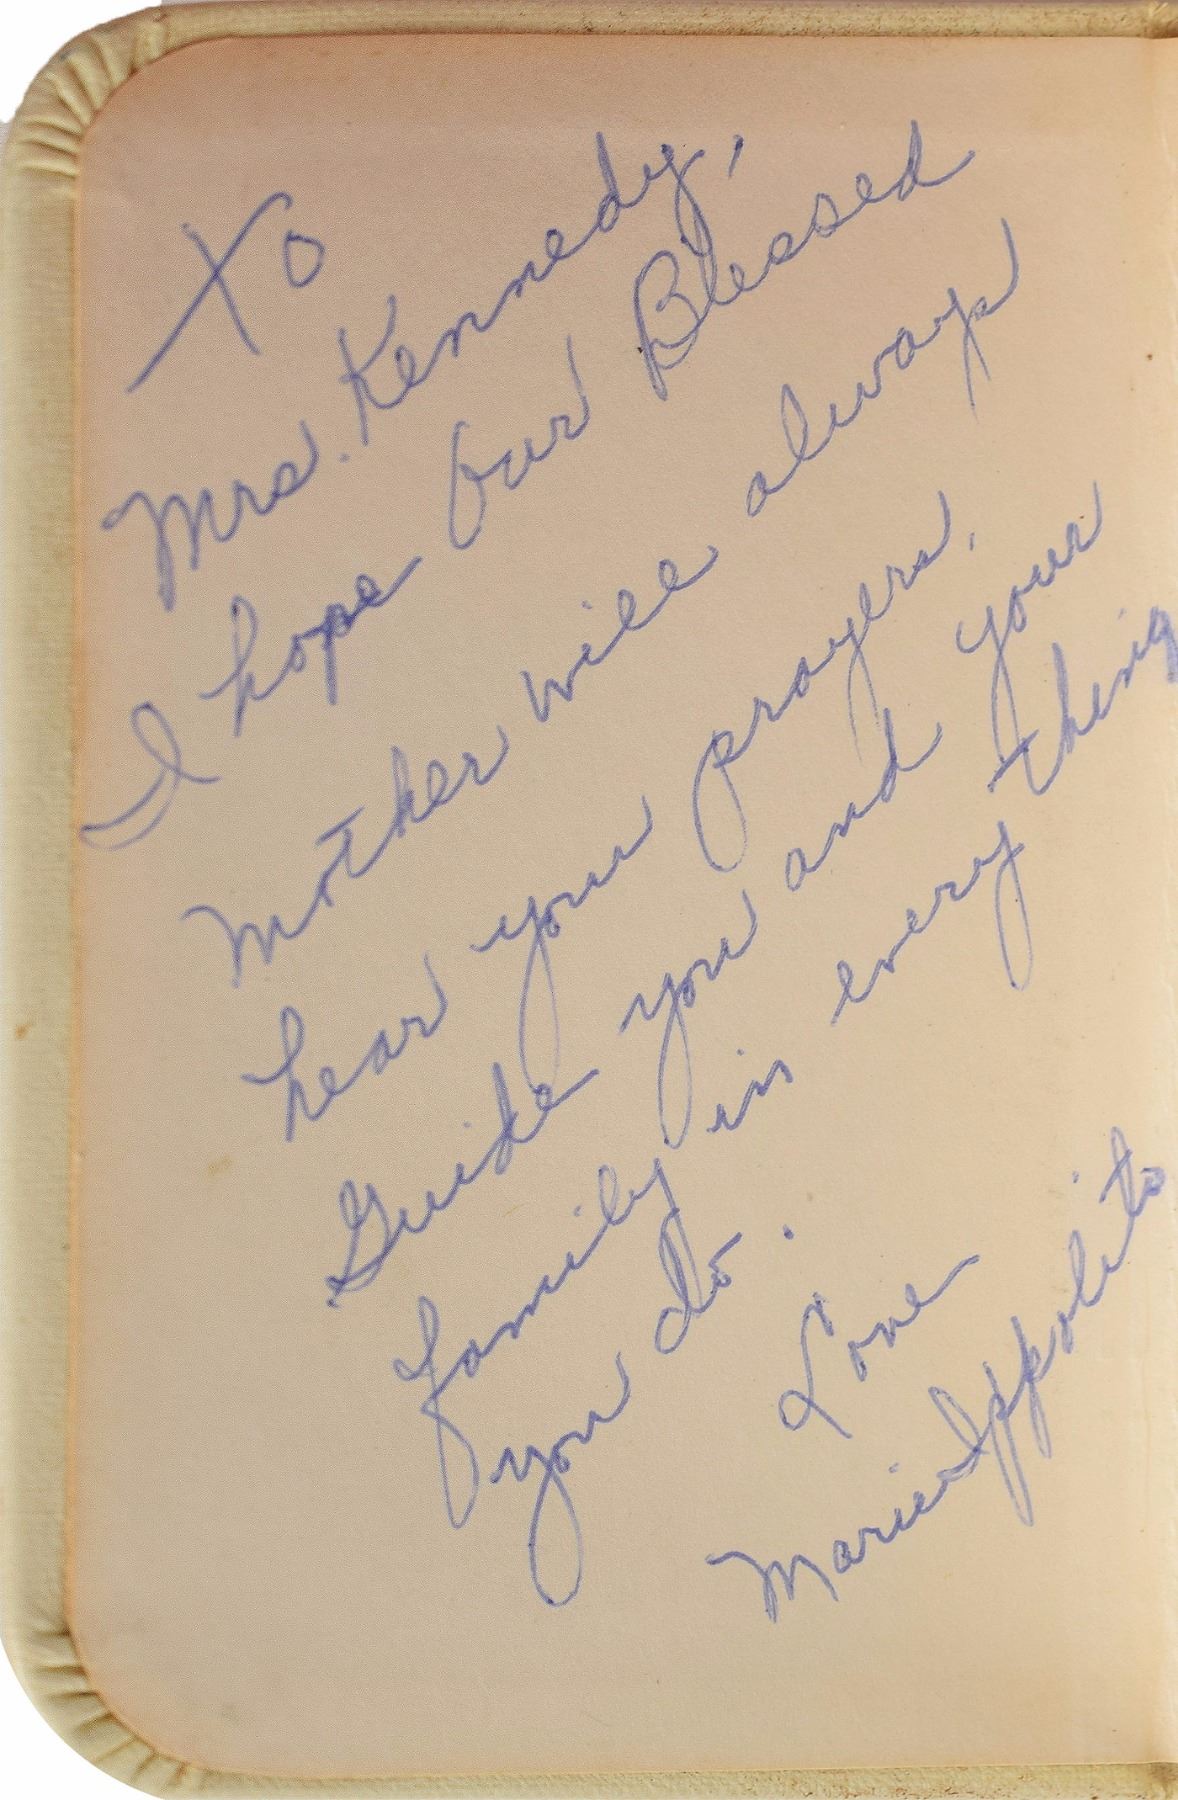 To
Mrs. Kennedy,
I hope Our Blessed
Mother will always
hear your prayers.
Guide you and your
family in every thing
you do.
Love
Marie Ippolito